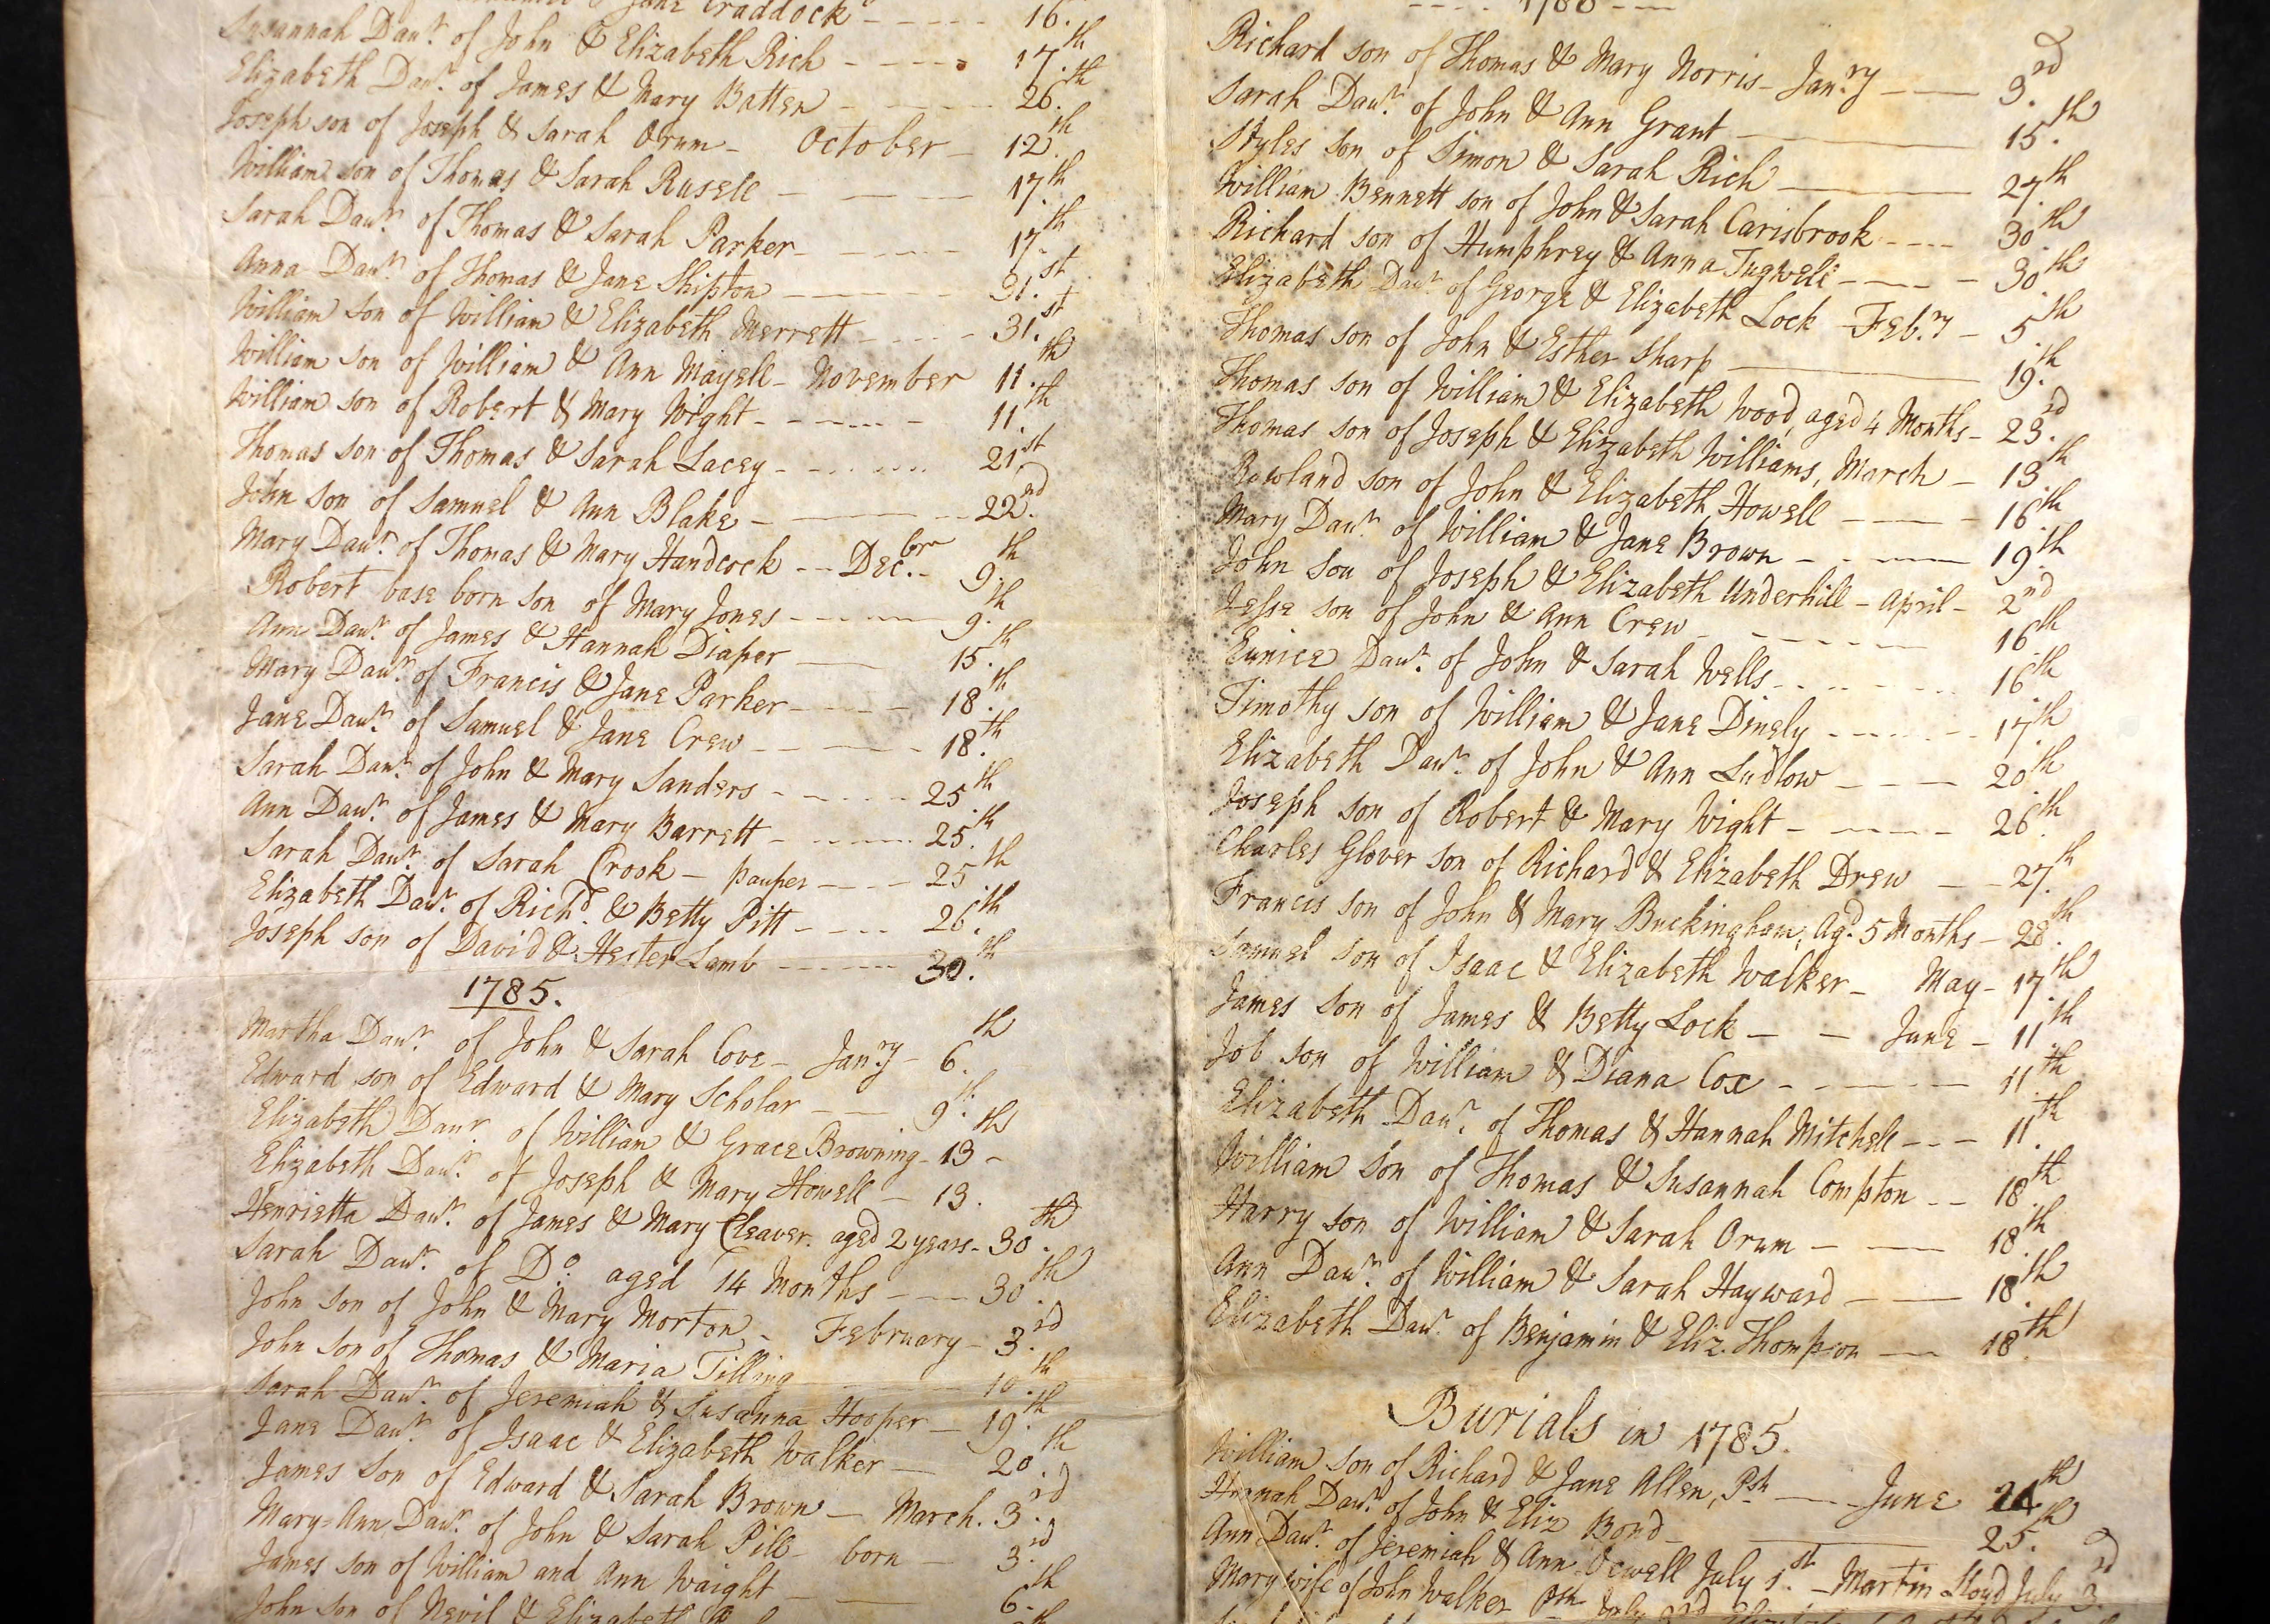 Jane Craddock - - - - - 16.
Susannah Daur. of John & Elizabeth Rich - - - - 17.th
Elizabeth Daur. of James & Mary Batten - - - - 26.th
Joseph son of Joseph & Sarah Orum - October - 12.th
William son of Thomas & Sarah Rusell - - - 17.th
Sarah Daur. of Thomas & Sarah Parker - - - - 17.th
Anna Daur. of Thomas & Jane Shipton - - - - 31.st
William son of William & Elizabeth Merrett - - - - 31.st
William son of William & Ann Mayell - November 11.th
William son of Robert & Mary Wight - - - - - 11.th
Thomas son of Thomas & Sarah Lacey - - - - - 21st
John son of Samuel & Ann Blake - - - - 22.nd
Mary Daur. of Thomas & Mary Handcock - - Dec.br - 9.th
Robert base born son of Mary Jones - - - - - 9.th
Ann Daur. of James & Hannah Diaper - - 15.th
Mary Daur. of Francis & Jane Parker - - - - - 18.th
Jane Daur. of Samuel & Jane Crew - - - - - 18.th
Sarah Daur. of John & Mary Sanders - - - - - 25.th
Ann Daur. of James & Mary Barrett - - - - - 25.th
Sarah Daur. of Sarah Crook - pauper - - - 25.th
Elizabeth Daur. of Richd. & Betty Pitt - - - - 26.th
Joseph son of David & Hester Lamb - - - - - 30.th
1785.
Martha Daur. of John & Sarah Cove - Jan.ry - 6.th
Edward son of Edward & Mary Scholar - - - 9.th
Elizabeth Daur. of William & Grace Browning - 13 - th
Elizabeth Daur. of Joseph & Mary Howell - 13.
Henrietta Daur. of James & Mary Cleaver. aged 2 years - 30.th
Sarah Daur. of Do. aged 14 Months - - - 30.th
John son of John & Mary Morton - February - 3.rd
John son of Thomas & Maria Tilling - 10.th
Sarah Daur. of Jeremiah & Susanna Hooper - 19.th
Jane Daur. of Isaac & Elizabeth Walker - 20.th
James son of Edward & Sarah Brown - March. 3.rd
Mary=Ann Daur. of John & Sarah Pill - born - 3.rd
James son of William and Ann Waight - - 6.th
John son of Nevil & Elizabeth
- - - - 1786 - - -
Richard son of Thomas & Mary Norris - Jan.ry - - 3.rd
Sarah Daur. of John & Ann Grant - 15.th
Styles son of Simon & Sarah Rich - 27th
William Bennett son of John & Sarah Carisbrook - - - - 30.th
Richard son of Humphrey & Anna Tugwell - - - - 30th
Elizabeth Daur. of George & Elizabeth Lock - Feb.ry - 5th
Thomas son of John & Esther Sharp - 19.th
Thomas son of William & Elizabeth Wood, aged 4 Months - 23.rd
Thomas son of Joseph & Elizabeth Williams, March - 13th
Rowland son of John & Elizabeth Howell - - - - 16th
Mary Daur. of William & Jane Brown - - - - 19.th
John son of Joseph & Elizabeth Underhill - April - 2nd
Jesse son of John & Ann Crew - - - - - 16.th
Eunice Daur. of John & Sarah Wells - - - - - 16th
Timothy son of William & Jane Dingly - - - - - 17.th
Elizabeth Daur. of John & Ann Ludlow - - - 20th
Joseph son of Robert & Mary Wight - - - - - 26.th
Charles Glover son of Richard & Elizabeth Drew - - 27.th
Francis son of John & Mary Buckingham, Agd. 5 Months - 28.th
Samuel son of Isaac & Elizabeth Walker - May - 17th
James son of James & Betty Lock - - June - 11.th
Job son of William & Diana Cox - - - - - 11.th
Elizabeth Daur. of Thomas & Hannah Mitchell - - - 11.th
William son of Thomas & Susannah Compton - - 18.th
Harry son of William & Sarah Orum - - - 18.th
Ann Daur. of William & Sarah Hayward - - 18.th
Elizabeth Daur. of Benjamin & Eliz. Thompson - - 18.th
Burials in 1785.
William son of Richard & Jane Allen, Psh - - - June 24.th
Hannah Daur. of John & Eliz Bond - 25.th
Ann Daur. of Jeremiah & Ann July 1.st - Martin Lloyd July 3.rd
Mary wife of John Walker Psh July 2nd